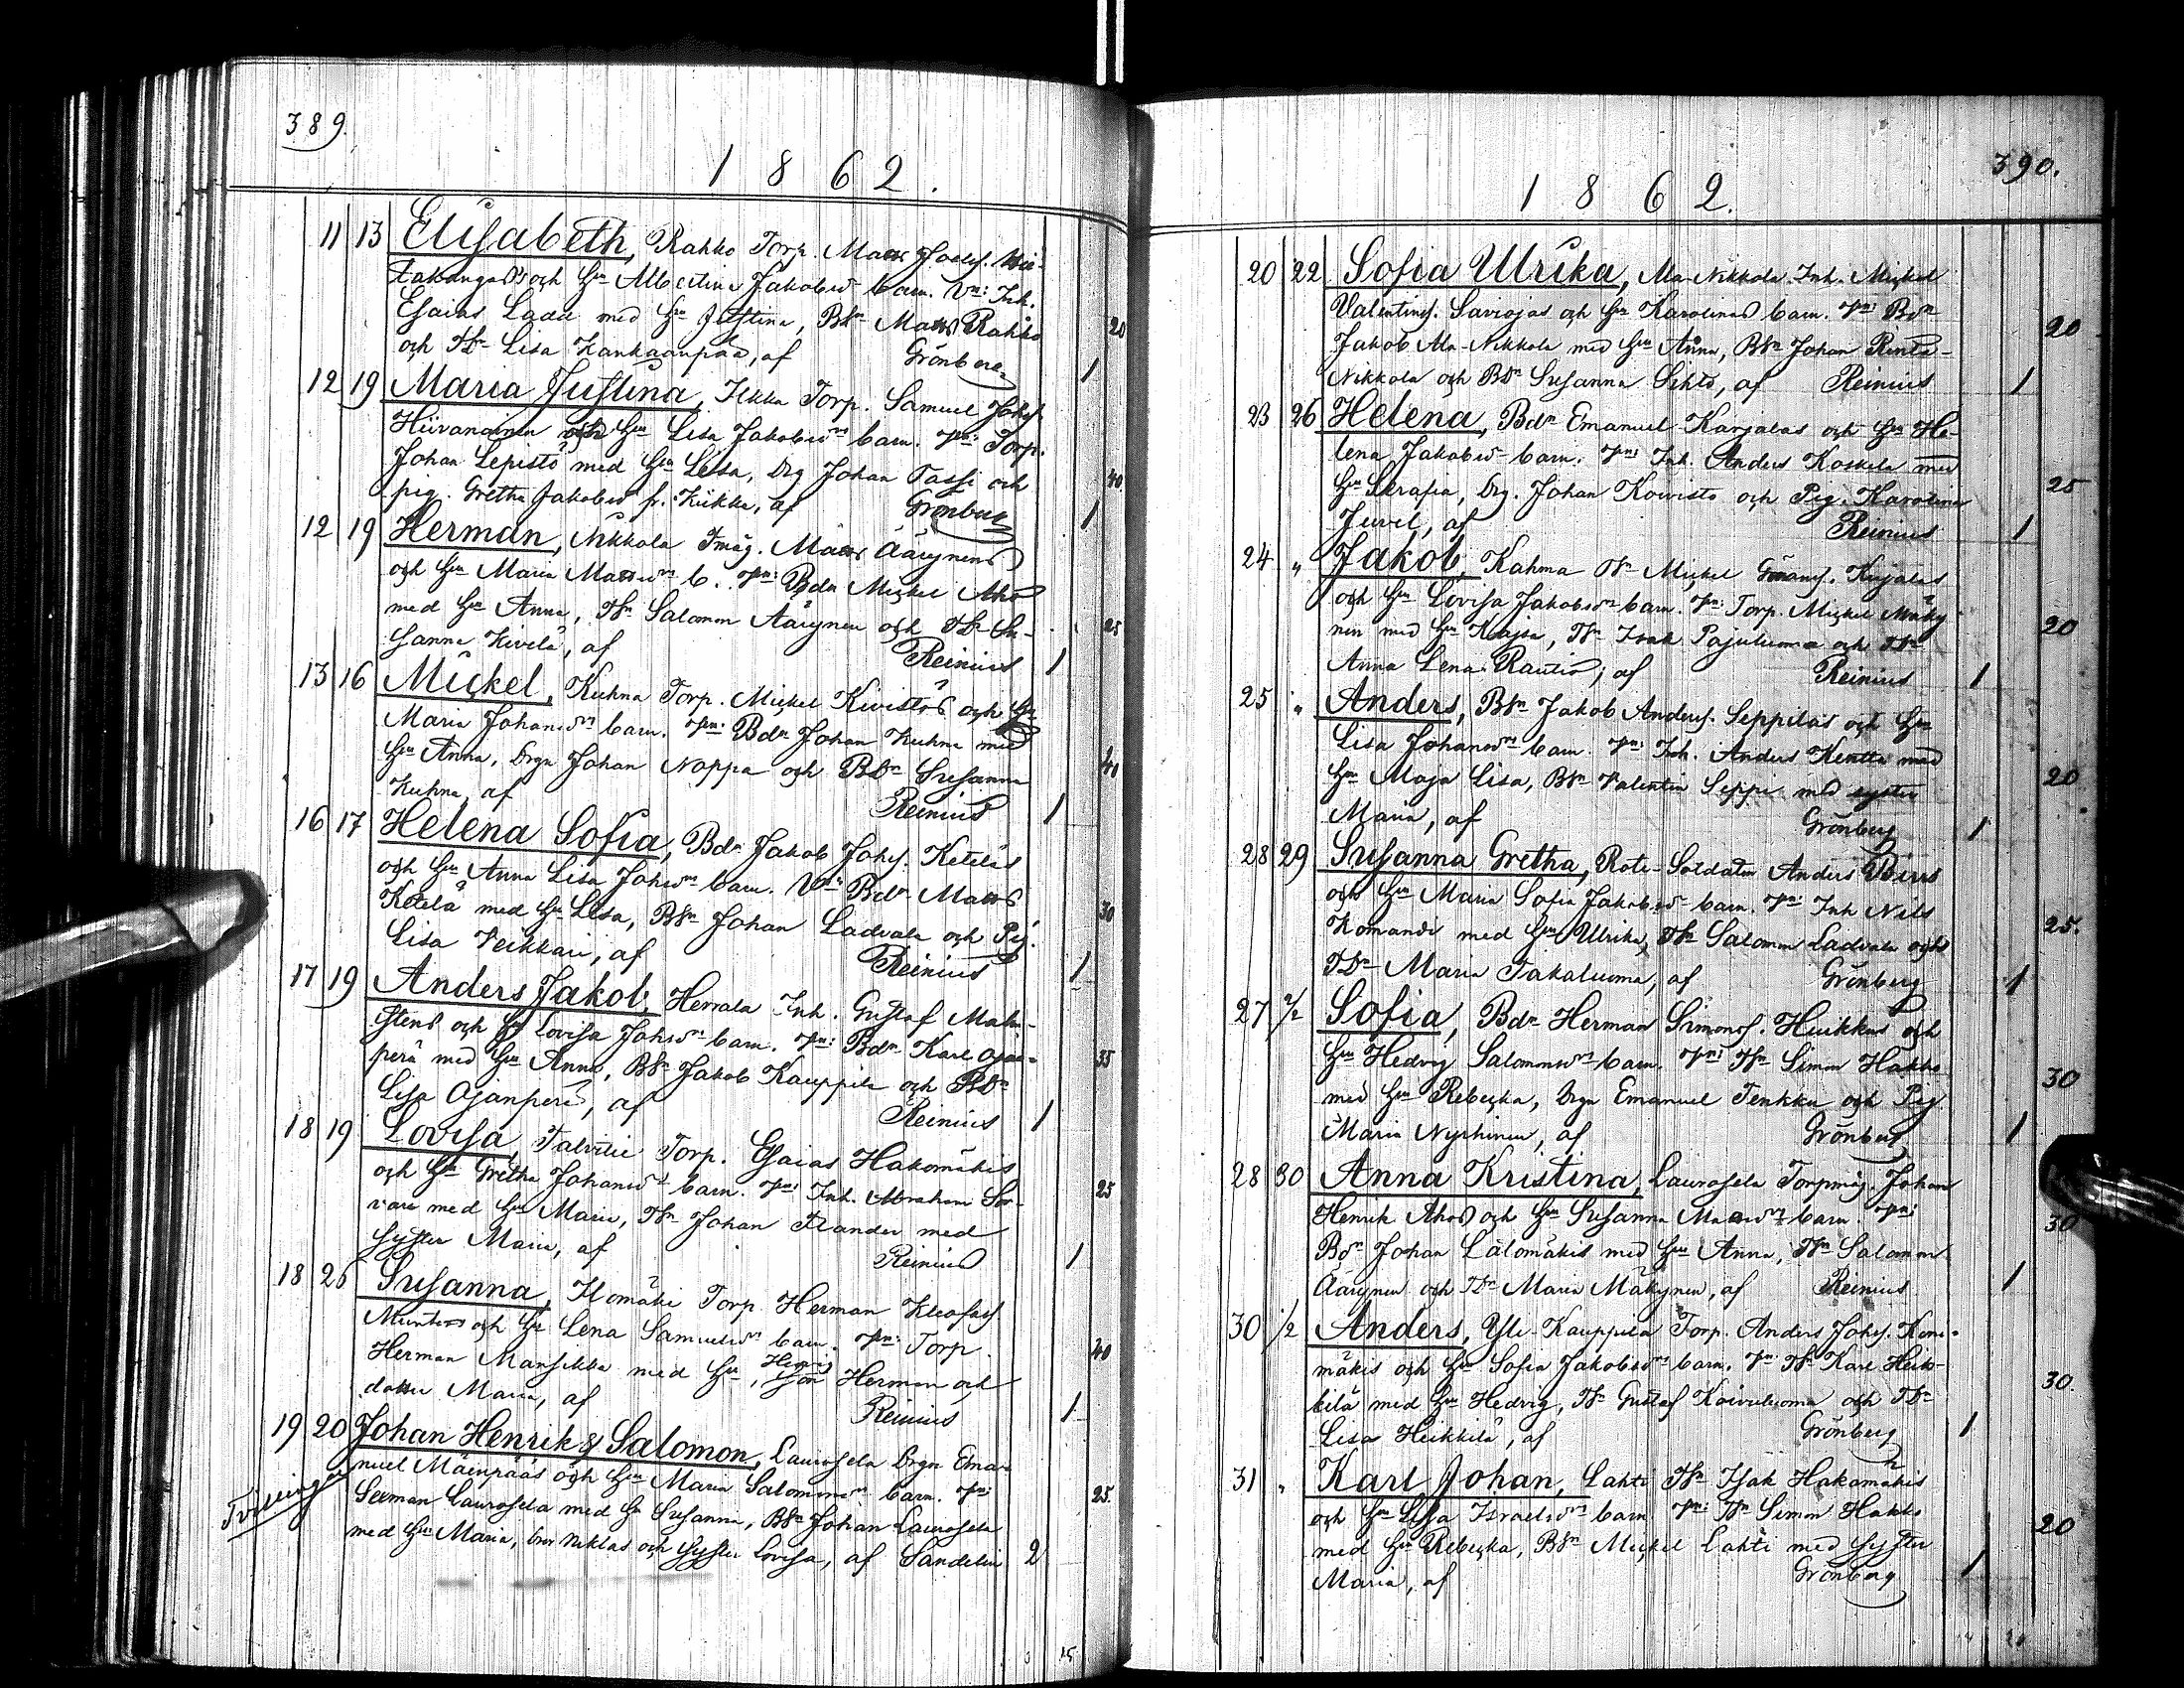 389.
1862.
11 13 Elisabeth, Rakko Torp. Matts Josefs.
och Hu Albertina Jakobsdr barn. Vn: Inh.
Esaias Ladu med Hu Justina, BSn Matts Rahko 20
och TDr Lisa Kankaanpää, af Grönberg 1
12 19 Maria Justina, Ilkka Torp. Samuel Johss.
Hiivanainen och Hu Lisa Jakobsdr barn. Vn: Torp.
Johan Lepistö med Hu Lisa, Drg Johan Passi och 40
pig. Gretha Jakobsdr fr. Kiikka, af Grönberg 1
12 19 Herman, Nikkola Tmåg. Matts Äärynens
och Hu Maria Mattsdr b. Vn: Bdn Mickel Aho
med Hu Anna, TSn Salomon Äärynen och TDr Su- 25
sanna Kivelä, af Reinius 1
13 16 Mickel, Kuhna Torp. Mickel Kivistös och Hu
Maria Johansdr barn. Vn: Bdn Johan Kuhna med
Hu Anna, Drgn Johan Noppa och BDr Susanna 40
Kuhna, af Reinius 1
16 17 Helena Sofia, Bdn Jakob Johss. Keteläs
och Hu Anna Lisa Johsdr barn. Vn: Bdn Matts
Ketelä med Hu Lisa, BSn Johan Ladvala och Pig. 30
Lisa Veikkari, af Reinius 1
17 19 Anders Jakob, Herrala Inh. Gustaf Malm-
stens och Hu Lovisa Johsdr barn. Vn: Bdn Karl Ojan-
perä med Hu Anna, BSn Jakob Kauppila och BDr 35
Lisa Ojanperä, af Reinius 1
18 19 Lovisa, Talvitie Torp. Esaias Hakomäkis
och Hu Gretha Johansdr barn. Vn: Inh. Abraham Sor-
vari med Hu Maria, TSn Johan Flander med 25
syster Maria, af Reinius 1
18 25 Susanna, Ilomäki Torp. Herman Kleofass.
och Hu Lena Samuelsdr barn. Vn: Torp.
Herman Mansikka med Hu, Son Herman och 40
dotter Maria, af Reinius 1
19 20 Johan Henrik & Salomon, Laurosela Drgn Ema-
Tvillingar
nuel Mäenpääs och Hu Maria Salomonsdr barn. Vn:
Seeman Laurosela med Hu Susanna, BSn Johan Laurosela 25.
med Hu Maria, bror Niklas och syster Lovisa, af Sandelin 2
15
390.
1862.
20 22 Sofia Ulrika, Ala-Nikkola Inh. Mickel
Valentins. Saviojas och Hu Karolinas barn. Vn: Bdn
Jakob Ala-Nikkola med Hu Anna, BSn Johan Rinta- 20
Nikkola och BDr Susanna Sihto, af Reinius 1
23 26 Helena, Bdn Emanuel Karjalas och Hu He-
lena Jakobsdr barn. Vn: Inh. Anders Koskela med
Hu Serafia, Drg. Johan Koivisto och Pig. Karolina 25
Juvel, af Reinius 1
24 " Jakob, Kahma TSn Mickel Kujalas
och Hu Lovisa Jakobsdr barn. Vn: Torp. Mickel Mäky-
nen med Hu Kajsa, TSn Isak Pajuluoma och TDr 20
Anna Lena Rautio, af Reinius 1
25 " Anders, BSn Jakob Anderss. Seppiläs och Hu
Lisa Johansdr barn. Vn: Inh. Anders Kentta med
Hu Maja Lisa, BSn Valentin Seppi med syster 20
Maria, af Grönberg 1
28 29 Susanna Gretha, Rote-Soldaten Anders Birrs
och Hu Maria Sofia Jakobsdr barn. Vn: Inh Nils
Komandi med Hu Ulrika, TSn Salomon Ladvala och 25.
TDr Maria Takaluoma, af Grönberg 1
27 2/2 Sofia, Bdn Herman Simonss. Huikkus och
Hu Hedvig Salomonsdr barn. Vn: TSn Simon Hakko
med Hu Rebecka, Drgn Emanuel Tenkku och Pig 30
Maria Nyrhinen, af Grönberg 1
28 30 Anna Kristina, Laurosela Torpmåg. Johan
Henrik Ahos och Hu Susanna Mattsdr barn. Vn:
Bdn Johan Lälomäkis med Hu Anna, TSn Salomon 30
Äärynen och TDr Maria Mäkynen, af Reinius 1
30 1/2 Anders, Yli-Kauppila Torp. Anders Johss. Koni-
mäkis och Hu Sofia Jakobsdr barn. Vn: TSn Karl Heik-
kilä med Hu Hedvig, TSn Gustaf Koivuluoma och TDr 30.
Lisa Heikkilä, af Grönberg 1
31 " Karl Johan, Lahti TSn Isak Hakomäkis
och Hu Lisa Israelsdr barn. Vn: TSn Simon Hakko
med Hu Rebecka, BSn Mickel Lahti med syster 20
Maria, af Grönberg 1